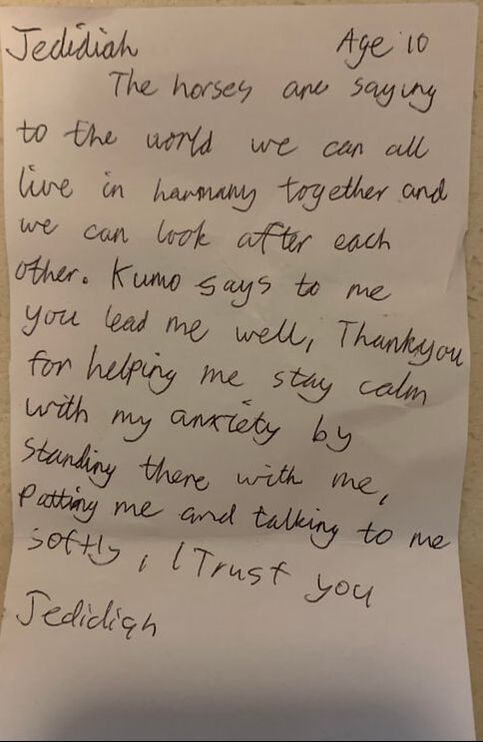 Jedidiah Age 10
The horses are saying
to the world we can all
live in harmany together and
we can look after each
other. Kumo says to me
you lead me well, Thankyou
for helping me stay calm
with my anxiety by
standing there with me,
Patting me and talking to me
softly, I Trust you
Jedidiah